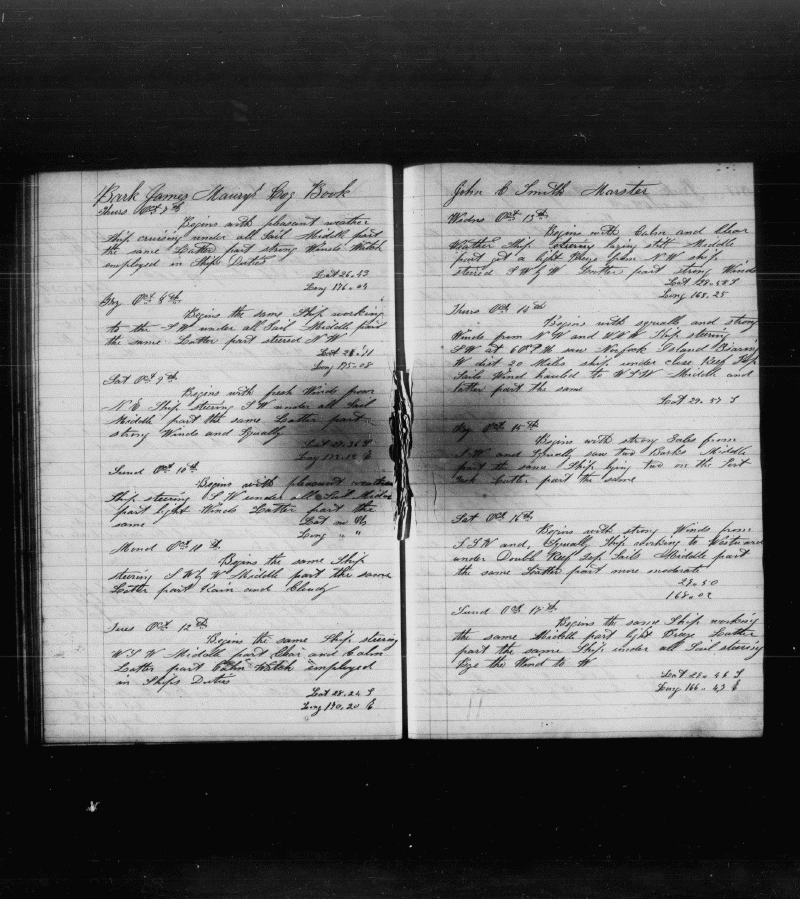 Bark James Maury's Log Book
Thurs Oct 7th
Begins with pleasant weather
Ship cruising under all Sail Middle part
the same Latter part strong Winds Watch
employed in Ships Duties
Lat 26.43
Long 176.04
Fry Oct 8th
Begins the same Ship working
to the SW under all Sail Middle part
the same Latter part steered NW
Lat 26.11
Long 175.08
Sat Oct 9th
Begins with fresh Winds from
N.E Ship steering S.W under all Sail
Middle part the same Latter part
strong Winds and Squally
Lat 27.36 S
Long 172.12 E
Sund Oct 10th
Begins with pleasant weather
Ship steering S W under all Sail Middle
part light Winds Latter part the
same Lat no Ob
Long " "
Mond Oct 11th
Begins the same Ship
steering S W by W Middle part the same
Latter part Rain and Cloudy
Tues Oct 12th
Begins the same Ship steering
W S W Middle part Clear and Calm
Latter part Calm Watch employed
in Ships Duties
Lat 28.24 S
Long 170.20 E
John C Smith Marster
Wedns Oct 13th
Begins with Calm and Clear
Weather Ship laying still Middle
part got a light Breze from N.W ship
steered S W by W Latter part strong Winds
Lat 28.58 S
Long 168.28
Thurs Oct 14th
Begins with squalls and strong
Winds from NW and WNW Ship steering
SW at 6 P.M saw Norfok Island Bearing
W dist 20 Miles ship under close Reef Top
Sails Wind hauled to W S W Middle and
latter part the same
Lat 29.57 S
Fry Oct 15th
Begins with strong Gales from
S.W and Squally saw two Barks Middle
part the same Ship lying two on the Port
Tack Latter part the same
Sat Oct 16th
Begins with strong Winds from
S.S.W and Squally Ship working to Westward
under Double Reef top Sails Middle part
the same Latter part more moderate
29.50
168.02
Sund Oct 17th
Begins the same Ship working
the same Middle part light Breze Latter
part the same Ship under all Sail steering
Bye the Wind to W
Lat 28.46 S
Long 166.43 E